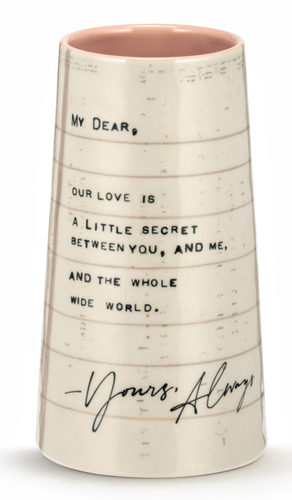 MY DEAR,
OUR LOVE IS
A LITTLE SECRET
BETWEEN YOU, AND ME,
AND THE WHOLE
WIDE WORLD.
—Yours, Always